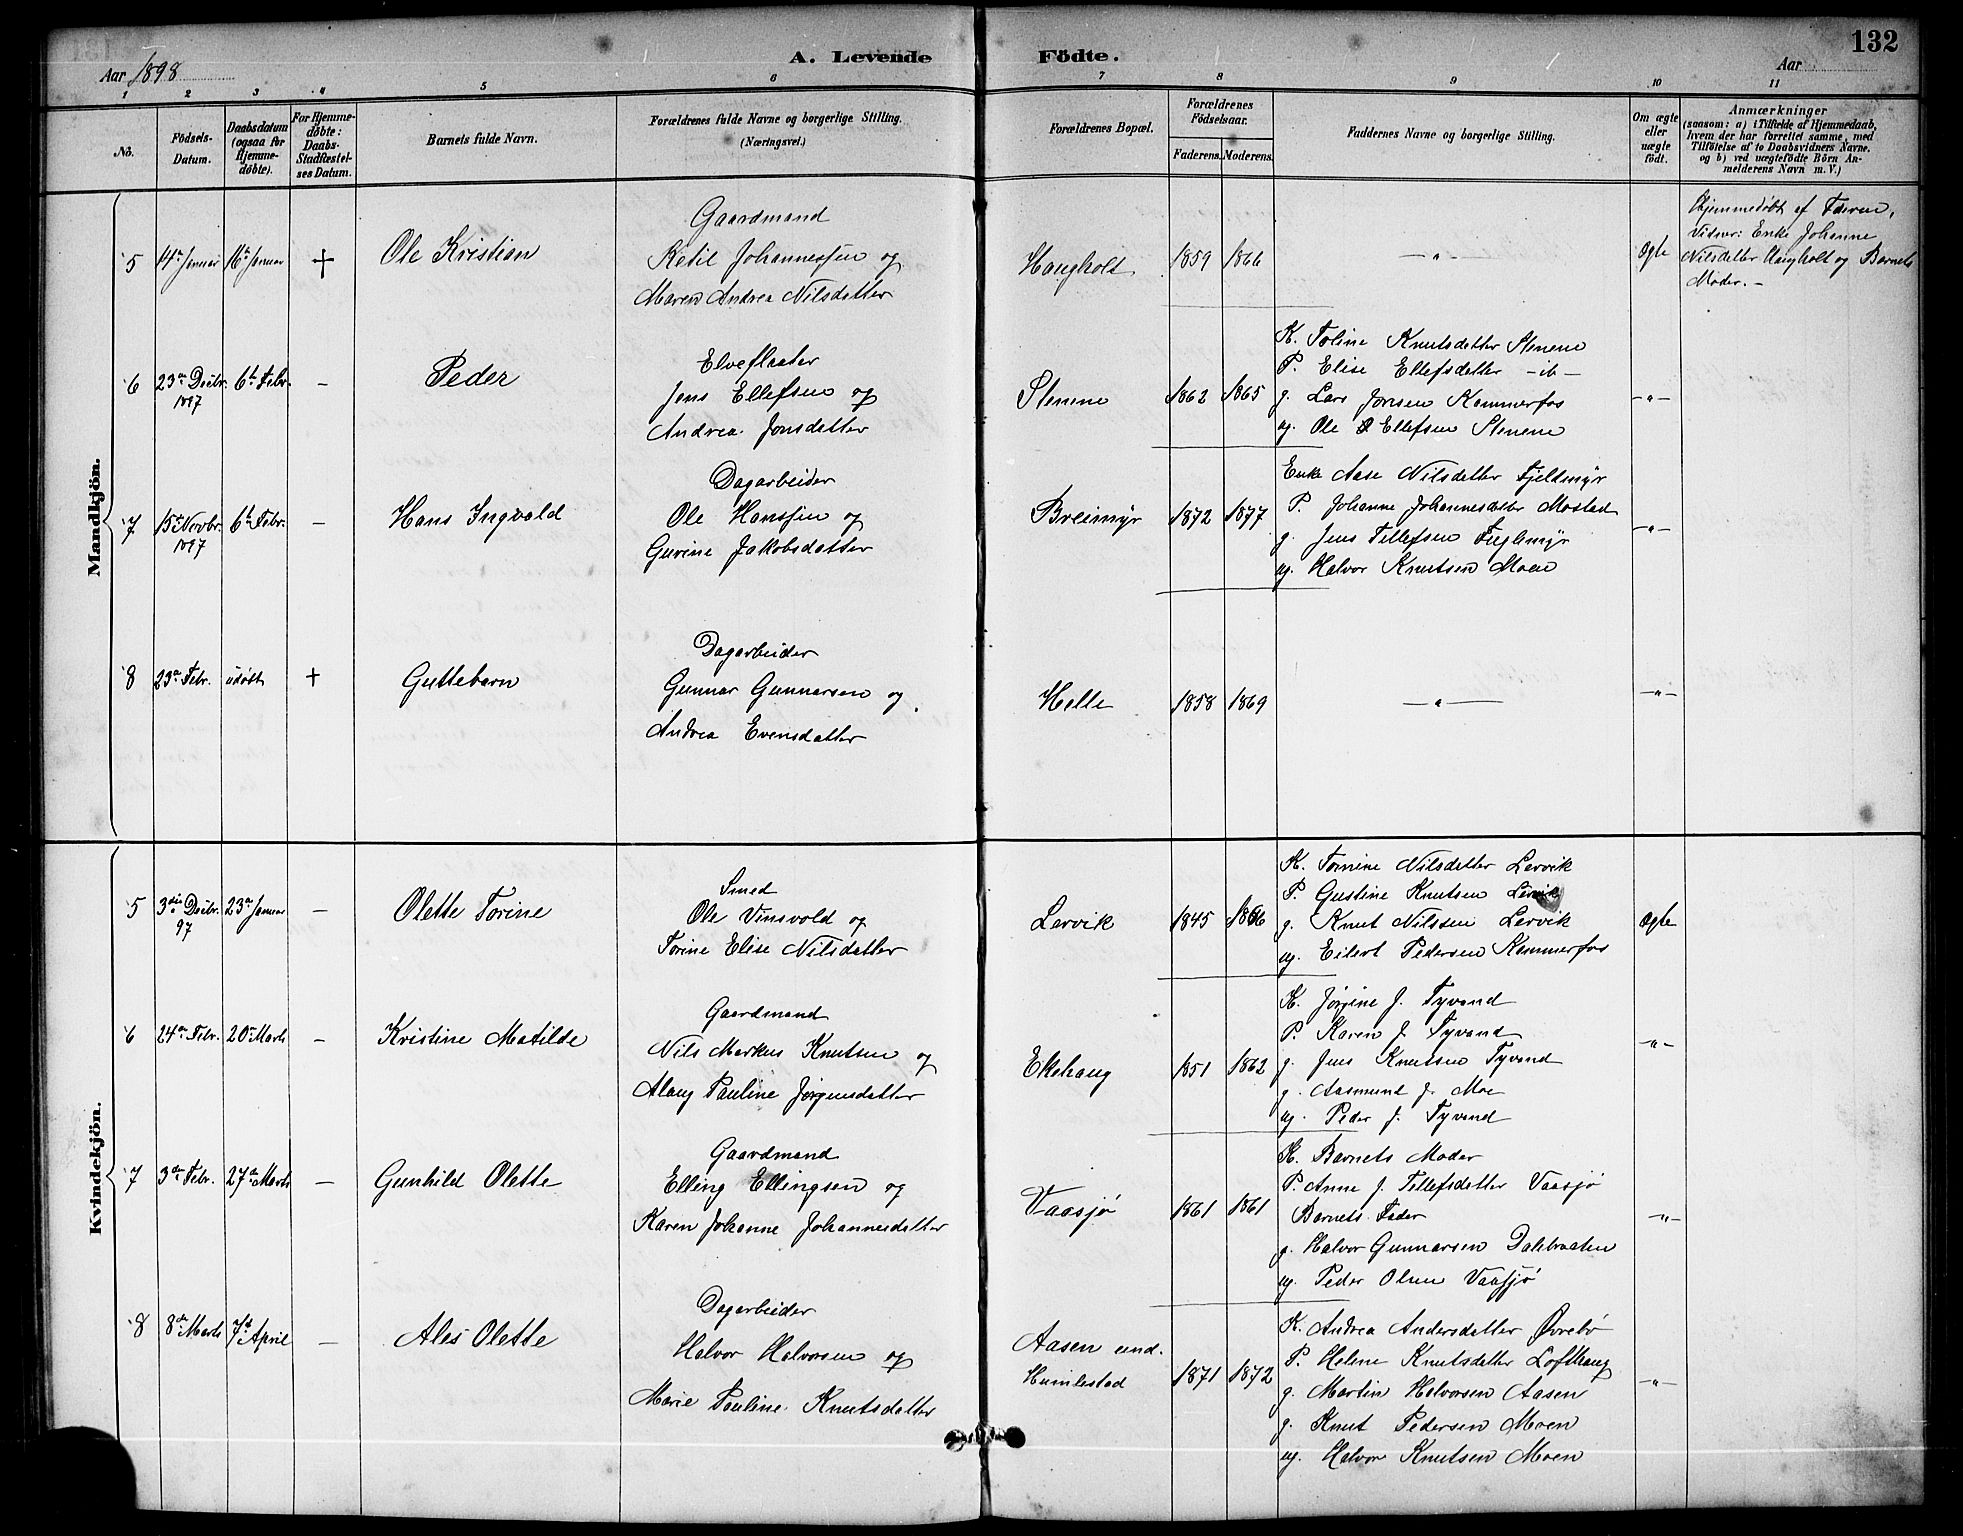 132
Aar 1898
A. Levende Födte.
Aar
1 2 3 4 5 6 7 8 9 10 11
No.
Födsels-Datum.
Daabsdatum (ogsaa for Hjemme-döbte).
For Hjemme-döbte: Daabs-Stadfæstel-ses Datum.
Barnets fulde Navn.
Forældrenes fulde Navne og borgerlige Stilling.
(Næringsvei.)
Forældrenes Bopæl.
Forældrenes Födselsaar.
Faderens. Moderens.
Faddernes Navne og borgerlige Stilling.
Om ægte eller uægte födt.
Anmærkninger
(saasom: a) i Tilfælde af Hjemmedaab,
hvem der har forrettet samme, med
Tilföielse af to Daabsvidners Navne.
og b) ved uægtefödte Börn An-
melderens Navn m. V.)
Mandkjön.
5 14de Januar 16de Januar † Ole Kristian
Gaardmand
Ketil Johannessen og
Maren Andrea Nilsdatter
Haugholt 1859 1866 —"— Ægte
Hjemmedøbt af Faderen,
Vidner: Enke Johanne
Nilsdatter Haugholt og Barnets
Moder. –
6 23de Decbr. 1897 6te Febr. – Peder
Elveflaater
Jens Ellefsen og
Andrea Jonsdatter
Stenene 1862 1865
K. Toline Knutsdatter Stenene
P. Elise Ellefsdatter – ib –
g. Lars Jonsen Kammerfos
ug. Ole Ellefsen Stenene
–"–
7 15de Novbr. 1897 6te Febr. – Hans Ingvald
Dagarbeider
Ole Hanssen og
Gurine Jakobsdatter
Breimyr 1872 1877
Enke Aase Nilsdatter Fjeldmyr
P. Johanne Johannesdatter Mostad
g. Jens Tellefsen Fuglemyr
ug. Halvor Knutsen Moen
–"–
8 23de Febr. udøbt † Guttebarn
Dagarbeider
Gunnar Gunnarsen og
Andrea Evensdatter
Helle 1858 1869 —"— –"–
Kvindekjön.
5 3die Decbr. 97 23de Januar – Olette Torine
Smed
Ole Vinsvold og
Torine Elise Nilsdatter
Lervik 1845 1866
K. Tomine Nilsdatter Lervik
P. Gustine Knutsen Lervik
g. Knut Nilssen Lervik
ug. Eilert Pedersen Kammerfos
Ægte
6 24de Febr. 20de Marts – Kristine Matilde
Gaardmand
Nils Markus Knutsen og
Alaug Pauline Jørgensdatter
Ekehaug 1851 1862
K. Jørgine J. Tyvand
P. Karen J. Tyvand
g. Jens Knutsen Tyvand
g. Aasmund J. Moe
ug. Peder J. Tyvand
–"–
7 3de Febr. 27de Marts – Gunhild Olette
Gaardmand
Elling Ellingsen og
Karen Johanne Johannesdatter
Vaasjø 1861 1861
K. Barnets Moder
P. Anne J. Tellefsdatter Vaasjø
Barnets Fader
g. Halvor Gunnarsen Dalebraaten
ug. Peder Olsen Vaasjø
–"–
8 8de Marts 7de April – Ales Olette
Dagarbeider
Halvor Halvorsen og
Marie Pauline Knutsdatter
Aasen und.
Humlestad
1871 1872
K. Andrea Andersdatter Øvrebø
P. Helene Knutsdatter Lofthaug
g. Martin Halvorsen Aasen
g. Knut Pedersen Moen
ug. Halvor Knutsen Moen
–"–